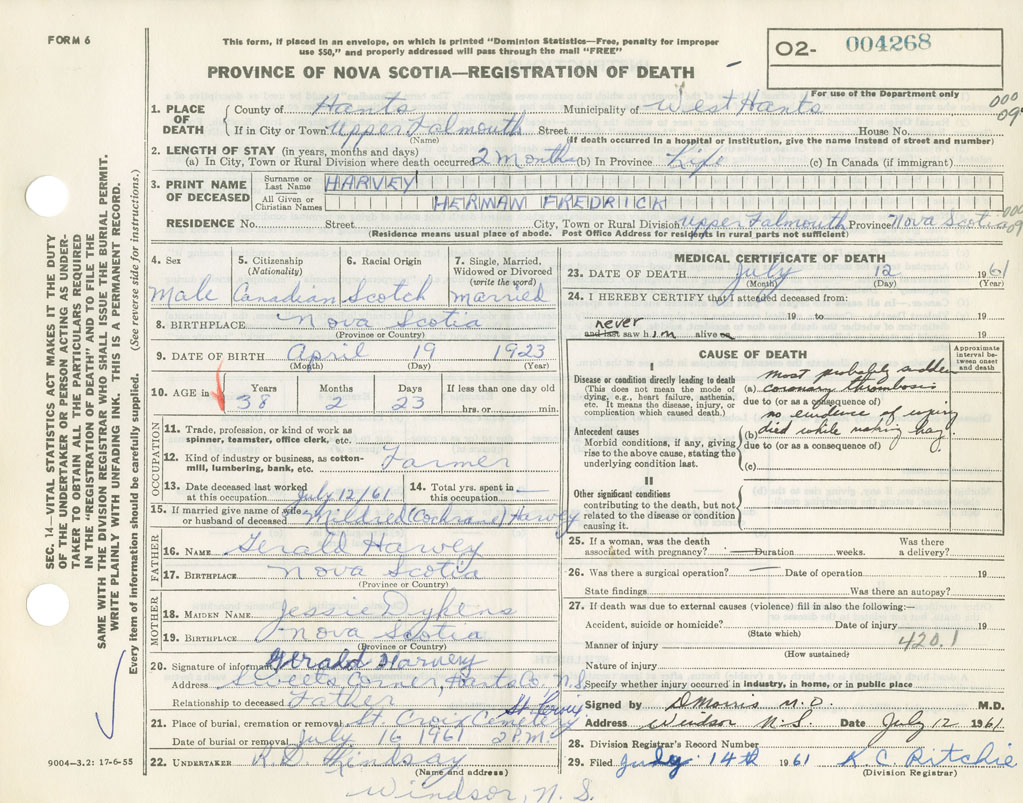 FORM 6
This form, if placed in an envelope, on which is printed "Dominion Statistics—Free, penalty for improper
use $50," and properly addressed will pass through the mail "FREE"
PROVINCE OF NOVA SCOTIA—REGISTRATION OF DEATH
O2- 004268
For use of the Department only
000
09
1. PLACE OF DEATH
County of Hants Municipality of West Hants
If in City or Town Upper Falmouth Street House No.
(Name) (If death occurred in a hospital or institution, give the name instead of street and number)
2. LENGTH OF STAY (in years, months and days)
(a) In City, Town or Rural Division where death occurred 2 Months (b) In Province Life (c) In Canada (if immigrant)
3. PRINT NAME OF DECEASED
Surname or Last Name HARVEY
All Given or Christian Names HERMAN FREDRICK
RESIDENCE No. Street City, Town or Rural Division Upper Falmouth Province Nova Scotia
000
09
(Residence means usual place of abode. Post Office Address for residents in rural parts not sufficient)
4. Sex
Male
5. Citizenship
(Nationality)
Canadian
6. Racial Origin
Scotch
7. Single, Married,
Widowed or Divorced
(write the word)
married
8. BIRTHPLACE Nova Scotia
(Province or Country)
9. DATE OF BIRTH April 19 1923
(Month) (Day) (Year)
10. AGE in
Years Months Days If less than one day old
38 2 23 hrs. or min.
OCCUPATION
11. Trade, profession, or kind of work as
spinner, teamster, office clerk, etc.
12. Kind of industry or business, as cotton-
mill, lumbering, bank, etc. Farmer
13. Date deceased last worked
at this occupation July 12/61
14. Total yrs. spent in
this occupation —
15. If married give name of wife
or husband of deceased Mildred (Cochrane) Harvey
FATHER
16. NAME Gerald Harvey
17. BIRTHPLACE Nova Scotia
(Province or Country)
MOTHER
18. MAIDEN NAME Jessie Dykens
19. BIRTHPLACE Nova Scotia
(Province or Country)
20. Signature of informant Gerald Harvey
Address Sweets Corner, Hants Co. N.S.
Relationship to deceased Father
21. Place of burial, cremation or removal St. Croix Cemetery St. Croix
Date of burial or removal July 16 1961 2 P.M.
22. UNDERTAKER R.D. Lindsay
(Name and address)
Windsor, N.S.
MEDICAL CERTIFICATE OF DEATH
23. DATE OF DEATH July 12 1961
(Month) (Day) (Year)
24. I HEREBY CERTIFY that I attended deceased from:
19 to 19
never
and last saw him alive on 19
CAUSE OF DEATH
Approximate
interval be-
tween onset
and death
I
Disease or condition directly leading to death
(This does not mean the mode of
dying, e.g., heart failure, asthenia,
etc. It means the disease, injury, or
complication which caused death.)
most probably sudden
(a) coronary thrombosis
due to (or as a consequence of)
no evidence of injury
Antecedent causes
Morbid conditions, if any, giving
rise to the above cause, stating the
underlying condition last.
died while making hay.
(b)
due to (or as a consequence of)
(c)
II
Other significant conditions
contributing to the death, but not
related to the disease or condition
causing it.
25. If a woman, was the death
associated with pregnancy? — Duration weeks. Was there
a delivery?
26. Was there a surgical operation? — Date of operation 19
State findings Was there an autopsy?
27. If death was due to external causes (violence) fill in also the following:—
Accident, suicide or homicide? Date of injury 19
(State which)
420.1
Manner of injury
(How sustained)
Nature of injury
Specify whether injury occurred in industry, in home, or in public place
Signed by D Morris M.D. M.D.
Address Windsor N.S. Date July 12 1961
28. Division Registrar's Record Number
29. Filed July 14th 1961 K C Ritchie
(Division Registrar)
SEC. 14—VITAL STATISTICS ACT MAKES IT THE DUTY
OF THE UNDERTAKER OR PERSON ACTING AS UNDER-
TAKER TO OBTAIN ALL THE PARTICULARS REQUIRED
IN THE "REGISTRATION OF DEATH" AND TO FILE THE
SAME WITH THE DIVISION REGISTRAR WHO SHALL ISSUE THE BURIAL PERMIT.
WRITE PLAINLY WITH UNFADING INK. THIS IS A PERMANENT RECORD.
Every item of information should be carefully supplied. (See reverse side for instructions.)
9004-3.2: 17-6-55